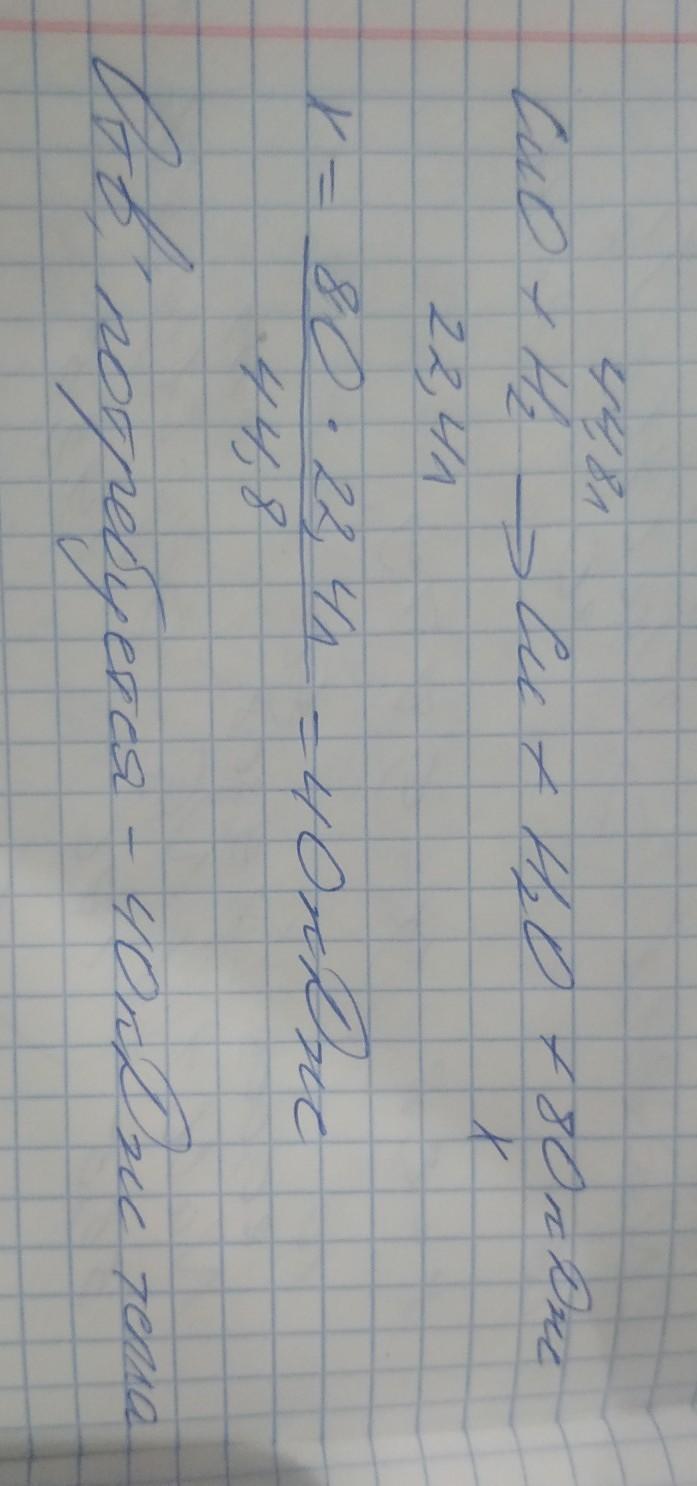 44,8л
CuO + H₂ → Cu + H₂O + 80кДж
22,4л x
x = 80 · 22,4л / 44,8 = 40кДж
Отв; потребуется - 40кДж тепла